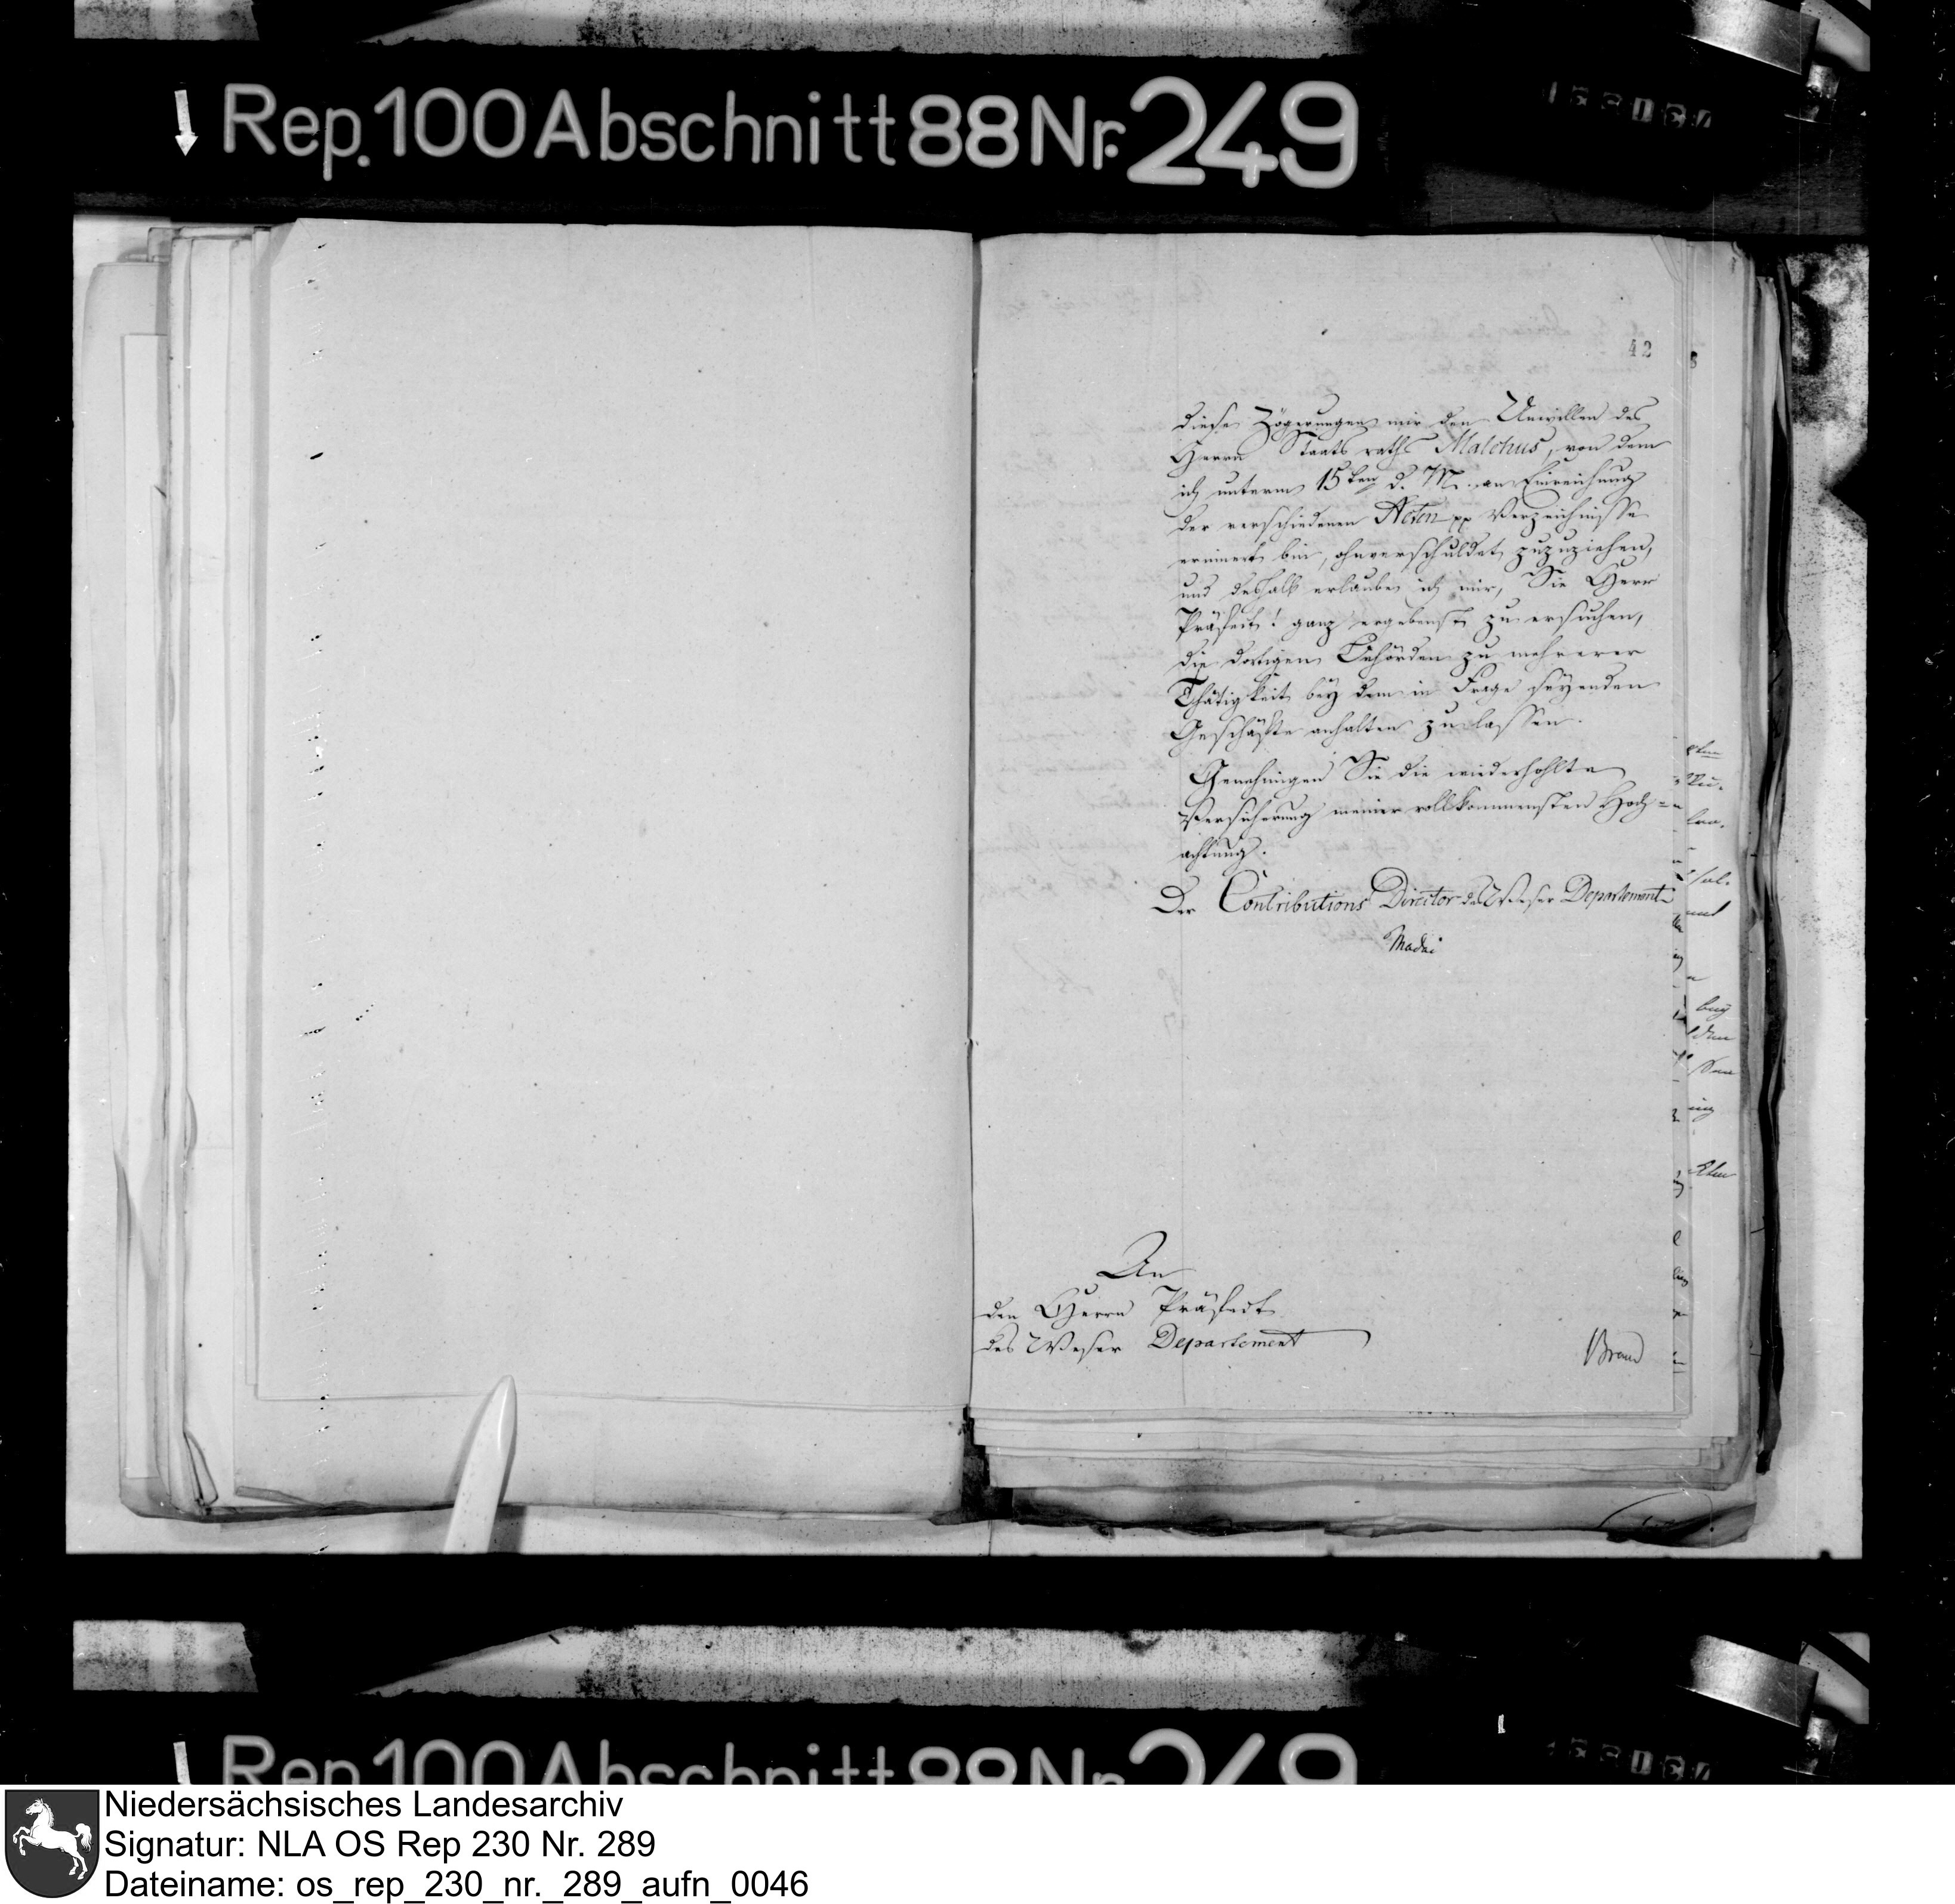 Rep. 100 Abschnitt 88 Nr. 249
42
diese Zögerungen mir den Unwillen des
Herrn Staats raths Malchus, von dem
ich unterm 15ten d. M. an Einreichung
der verschiedenen Acten pp Verzeichnisse
erinnert bin, ohnverschuldet zuzuziehen,
und deshalb erlaube ich mir, Sie Herr
Präfect! ganz ergebenst zu ersuchen,
die dortigen Behörden zu mehrerer
Thätigkeit bey dem in Frage seyenden
Geschäfte anhalten zu lassen.
Genehmigen Sie die wiederhohlte
Versicherung meiner vollkommensten Hoch-
achtung.
Der Contributions Director des Weser Departements
Madai
An
den Herrn Präfect
des Weser Departement
Rep. 100 Abschnitt 88 Nr. 249
Niedersächsisches Landesarchiv
Signatur: NLA OS Rep 230 Nr. 289
Dateiname: os_rep_230_nr._289_aufn_0046